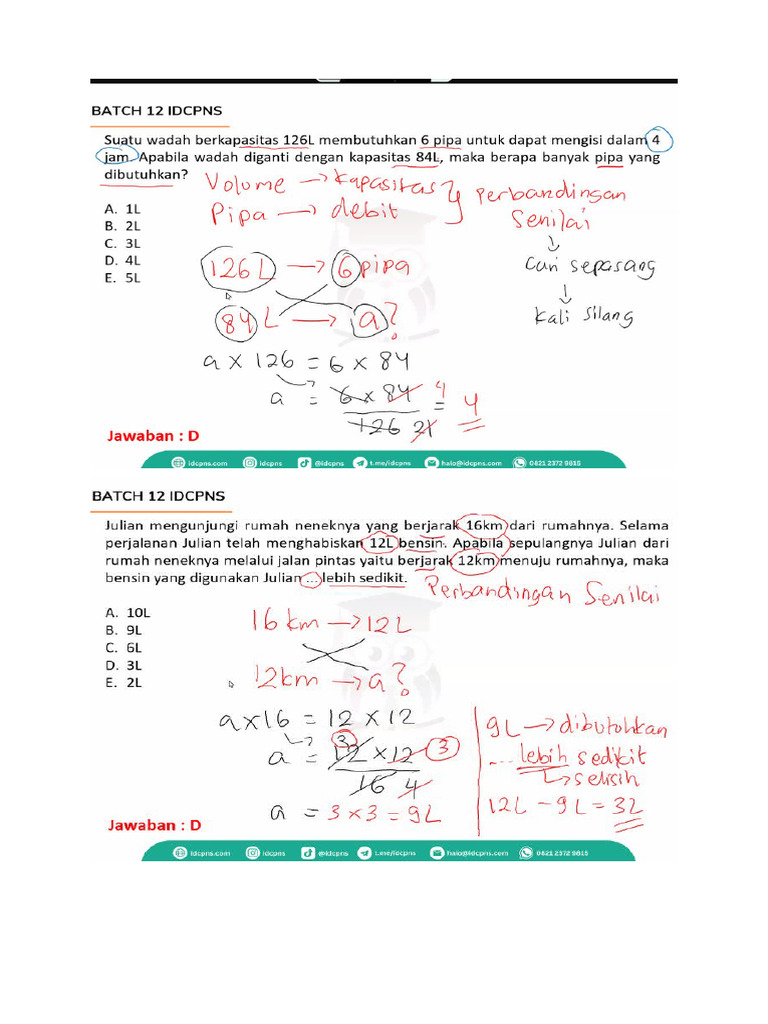 BATCH 12 IDCPNS
Suatu wadah berkapasitas 126L membutuhkan 6 pipa untuk dapat mengisi dalam 4
jam. Apabila wadah diganti dengan kapasitas 84L, maka berapa banyak pipa yang
dibutuhkan?
Volume → kapasitas
Pipa → debit
Perbandingan
Senilai
↓
Cari sepasang
↓
kali silang
A. 1L
B. 2L
C. 3L
D. 4L
E. 5L
126L → 6 pipa
84 L → a?
a x 126 = 6 x 84
a = 6 x 84 4
126 21
= 4
Jawaban : D
idcpns.com idcpns @idcpns t.me/idcpns halo@idcpns.com 0821 2372 9815
BATCH 12 IDCPNS
Julian mengunjungi rumah neneknya yang berjarak 16km dari rumahnya. Selama
perjalanan Julian telah menghabiskan 12L bensin. Apabila sepulangnya Julian dari
rumah neneknya melalui jalan pintas yaitu berjarak 12km menuju rumahnya, maka
bensin yang digunakan Julian ... lebih sedikit.
Perbandingan Senilai
A. 10L
B. 9L
C. 6L
D. 3L
E. 2L
16 km → 12L
12km → a?
a x 16 = 12 x 12
a = 3 12 x 12 3
16 4
a = 3 x 3 = 9L
9L → dibutuhkan
... lebih sedikit
↳ selisih
12L - 9L = 3L
Jawaban : D
idcpns.com idcpns @idcpns t.me/idcpns halo@idcpns.com 0821 2372 9815